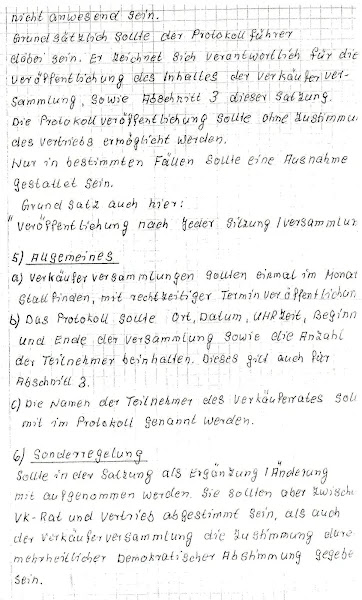 nicht anwesend sein.
Grundsätzlich sollte der Protokollführer
dabei sein. Er zeichnet sich verantwortlich für die
Veröffentlichung des Inhaltes der Verkäuferver-
sammlung, sowie Abschnitt 3 dieser Satzung.
Die Protokollveröffentlichung sollte ohne Zustimmu
des Vertriebs ermöglicht werden.
Nur in bestimmten Fällen sollte eine Ausnahme
gestattet sein.
Grundsatz auch hier:
"Veröffentlichung nach jeder Sitzung / Versammlun
5) Allgemeines
a) Verkäuferversammlungen sollten einmal im Monat
stattfinden, mit rechtzeitiger Terminveröffentlichun
b) Das Protokoll sollte Ort, Datum, Uhrzeit, Beginn
und Ende der Versammlung sowie die Anzahl
der Teilnehmer beinhalten. Dieses gilt auch für
Abschnitt 3.
c) Die Namen der Teilnehmer des Verkäuferrates soll
mit im Protokoll genannt werden.
6) Sonderregelung
Sollte in der Satzung als Ergänzung / Änderung
mit aufgenommen werden. Sie sollten aber zwische
VK-Rat und Vertrieb abgestimmt sein, als auch
der Verkäuferversammlung die Zustimmung durc
mehrheitlicher Demokratischer Abstimmung gegebe
sein.